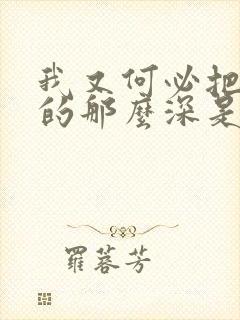 我又何必把
的那麼深是
羅蓉芳